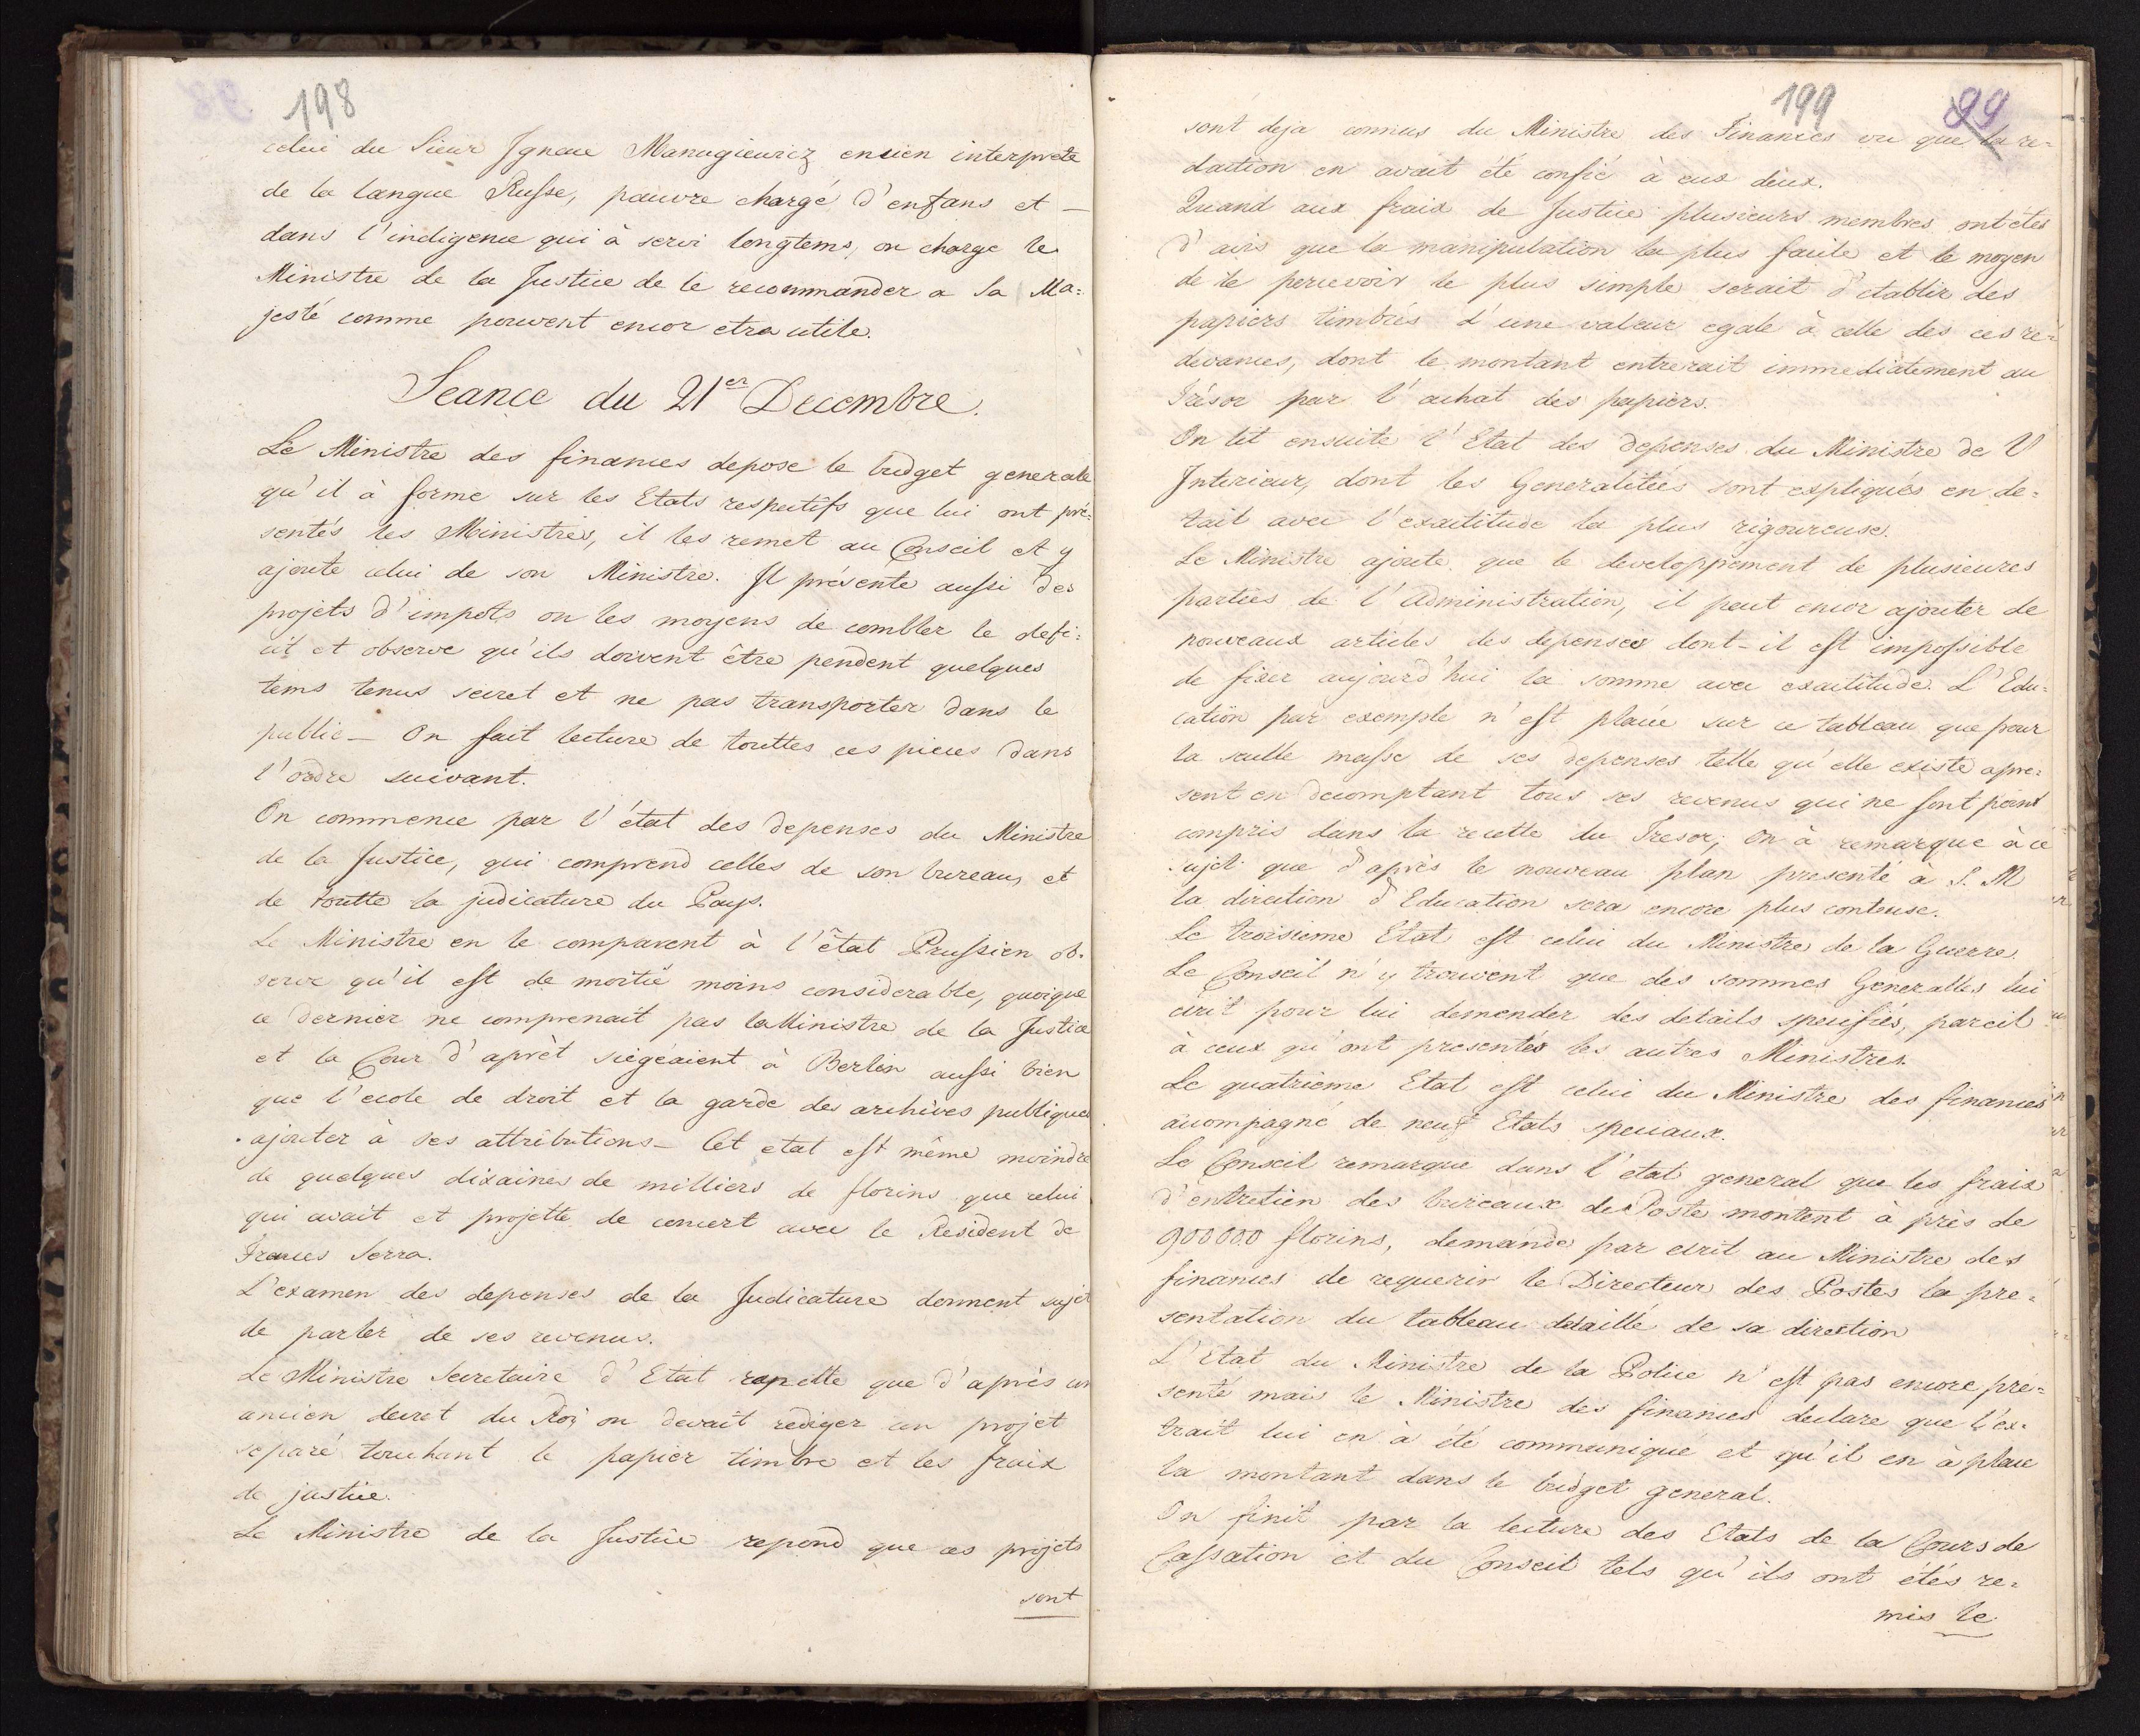 198
celui du Sieur Ignace Manugiewicz encien interprete
de la langue Russe, pauvre chargé d'enfans et —
dans l'indigence qui à servi longtems, on charge le
Ministre de la Justice de le recommander a Sa Ma=
jesté comme pouvent encor etra utile.
Seance du 21er Decembre.
Le Ministre des finances depose le budget generale
qu'il à forme sur les Etats respectifs que lui ont pré=
sentés les Ministres, il les remet au Conseil et y
ajoute celui de son Ministre. Il présente aussi des
projets d'impots on les moyens de combler le defi=
cit et observe qu'ils doivent être pendent quelques
tems tenus secret et ne pas transporter dans le
public — On fait lecture de touttes ces pieces dans
l'ordre suivant.
On commence par l'état des depenses du Ministre
de la Justice, qui comprend celles de son bureau, et
de toutte la judicature du Pays.
Le Ministre en le comparent à l'état Prussien ob=
serve qu'il est de moitié moins considerable, quoique
ce dernier ne comprenait pas le Ministre de la Justice
et la Cour d'aprèt siegéaient à Berlin aussi bien
que l'ecole de droit et la garde des archives publiques
ajouter à ses attributions — Cet etat est même moindre
de quelques dixaines de milliers de florins que celui
qui avait et projette de concert avec le Resident de
Frances Serra.
L'examen des depenses de la Judicature donnent sujet
de parler de ses revenus.
Le Ministre Secretaire d'Etat rapelle que d'après un
ancien decret du Roi on devait rediger un projet
separé touchant le papier timbre et les fraix
de justice.
Le Ministre de la Justice repond que ces projets
sont
199
99
sont deja connus du Ministre des Finances vu que la re=
daction en avait été confié à eux deux.
Quand aux fraix de Justice plusieurs membres ont étés
d'avis que la manipulation la plus facile et le moyen
de le percevoir le plus simple serait d'etablir des
papiers timbrés d'une valeur egale à celle des ces re=
devances, dont le montant entrerait immediatement au
Trésor par l'achat des papiers.
On lit ensuite l'Etat des depenses du Ministre de l'
Interieur, dont les Generalitées sont expliqués en de=
tail avec l'exactitude la plus rigoureuse.
Le Ministre ajoute que le developpement de plusieures
parties de l'Administration, il peut encor ajouter de
nouveaux articles des depenses dont-il est impossible
de fixer aujourd'hui la somme avec exactitude. L'Edu=
cation par exemple n'est placée sur ce tableau que pour
la seulle masse de ses depenses telle qu'elle existe apre=
sent en decomptant tous ses revenus qui ne sont point
compris dans la recette du Tresor, On à remarque à ce
sujet que d'après le nouveau plan presenté à S. M
la direction d'Education sera encore plus conteuse.
Le troisieme Etat est celui du Ministre de la Guerre.
Le Conseil n'y trouvent que des sommes Generalles lui
ecrit pour lui demender des details specifiés, pareil
à ceux qu'ont presentés les autres Ministres.
Le quatrieme Etat est celui du Ministre des finances
accompagné de neuf Etats speciaux.
Le Conseil remarque dans l'etat general que les fraix
d'entretien des bureaux de Poste montent à près de
900000 florins, demande par ecrit au Ministre des
finances de requerir le Directeur des Postes la pre=
sentation du tableau detaillé de sa direction
L'Etat du Ministre de la Police n'est pas encore pre=
senté mais le Ministre des finances declare que l'ex=
trait lui en à été communiqué et qu'il en à place
la montant dans le budget general.
On finit par la lecture des Etats de la Cours de
Cassation et du Conseil tels qu'ils ont étés re=
mis le